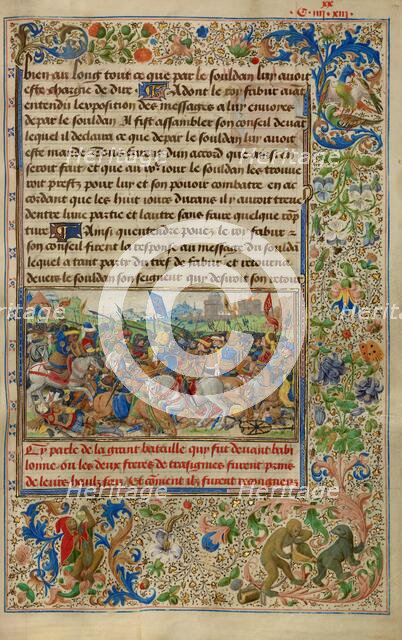 xx
C iiii xiii
bien au long tout ce que par le souldan luy auoit
este charge de dire Adont le roy fabur aiat
entendu lexposition des messages a luy enuoies
depar le souldan Il fist assembler son conseil deuat
lequel il declaira ce que depar le souldan luy auoit
este mande Tous furent dun accord que
seroit fait et que au le souldan les trouue
roit prestz pour luy et son pouoir combatre en ac
cordant que les huit iours durans ilz auroit treue
dentre lune partie et lautre sans faire quelque
Ainsi quentendre pouez le roy fabur z
son conseil firent la response au message du souldan
lequel atant party du tref de fabur et retourna
deuers le souldan son seigneur quy desiroit son retour
Cy parle de la grant bataille quy fut deuant babi
lonne ou les deux freres de trasignies furent
de leurs et comment ilz furent
Heritage Images
Heritage Images
Heritage Images
Heritage Images